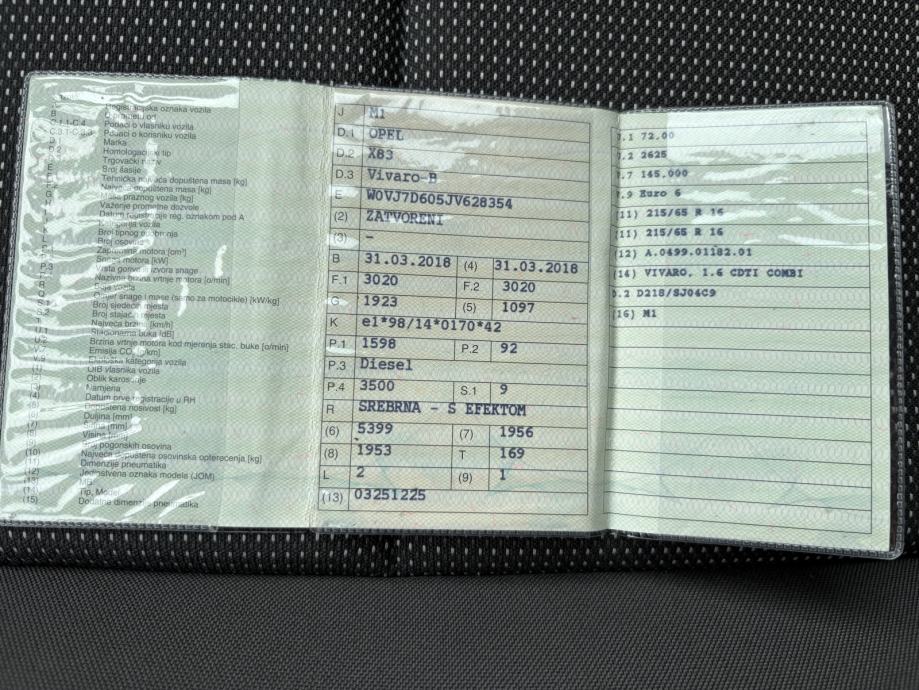 Registracijska oznaka vozila
U prometu od
C.1.1-C.4 Podaci o vlasniku vozila
C.3.1-C.3.3 Podaci o korisniku vozila
Marka
Homologacijski tip
Trgovački naziv
Broj šasije
Tehnička najveća dopuštena masa [kg]
Najveća dopuštena masa [kg]
Masa praznog vozila [kg]
Važenje prometne dozvole
Datum registracije reg. oznakom pod A
Kategorija vozila
Broj tipnog odobrenja
Broj osovina
Zapremina motora [cm³]
Snaga motora [kW]
Vrsta goriva ili izvora snage
Nazivna brzina vrtnje motora [o/min]
Boja vozila
Omjer snage i mase (samo za motocikle) [kW/kg]
Broj sjedećih mjesta
Broj stajaćih mjesta
Najveća brzina [km/h]
Stacionarna buka [dB]
Brzina vrtnje motora kod mjerenja stac. buke [o/min]
Emisija CO₂ [g/km]
Ekološka kategorija vozila
OIB vlasnika vozila
Oblik karoserije
Namjena
Datum prve registracije u RH
Dopuštena nosivost [kg]
Duljina [mm]
Širina [mm]
Visina [mm]
Broj pogonskih osovina
(10) Najveća dopuštena osovinska opterećenja [kg]
Dimenzije pneumatika
Jedinstvena oznaka modela (JOM)
MB
Tip, Model
(15) Dodatne dimenzije pneumatika
J M1
D.1 OPEL
D.2 X83
D.3 Vivaro-B
E W0VJ7D605JV628354
(2) ZATVORENI
(3) –
B 31.03.2018 (4) 31.03.2018
F.1 3020 F.2 3020
G 1923 (5) 1097
K e1*98/14*0170*42
P.1 1598 P.2 92
P.3 Diesel
P.4 3500 S.1 9
R SREBRNA - S EFEKTOM
(6) 5399 (7) 1956
(8) 1953 T 169
L 2 (9) 1
(13) 03251225
.1 72,00
.2 2625
.7 145,000
.9 Euro 6
(11) 215/65 R 16
(11) 215/65 R 16
(12) A.0499.01182.01
(14) VIVARO, 1.6 CDTI COMBI
.2 D218/SJ04C9
(16) M1